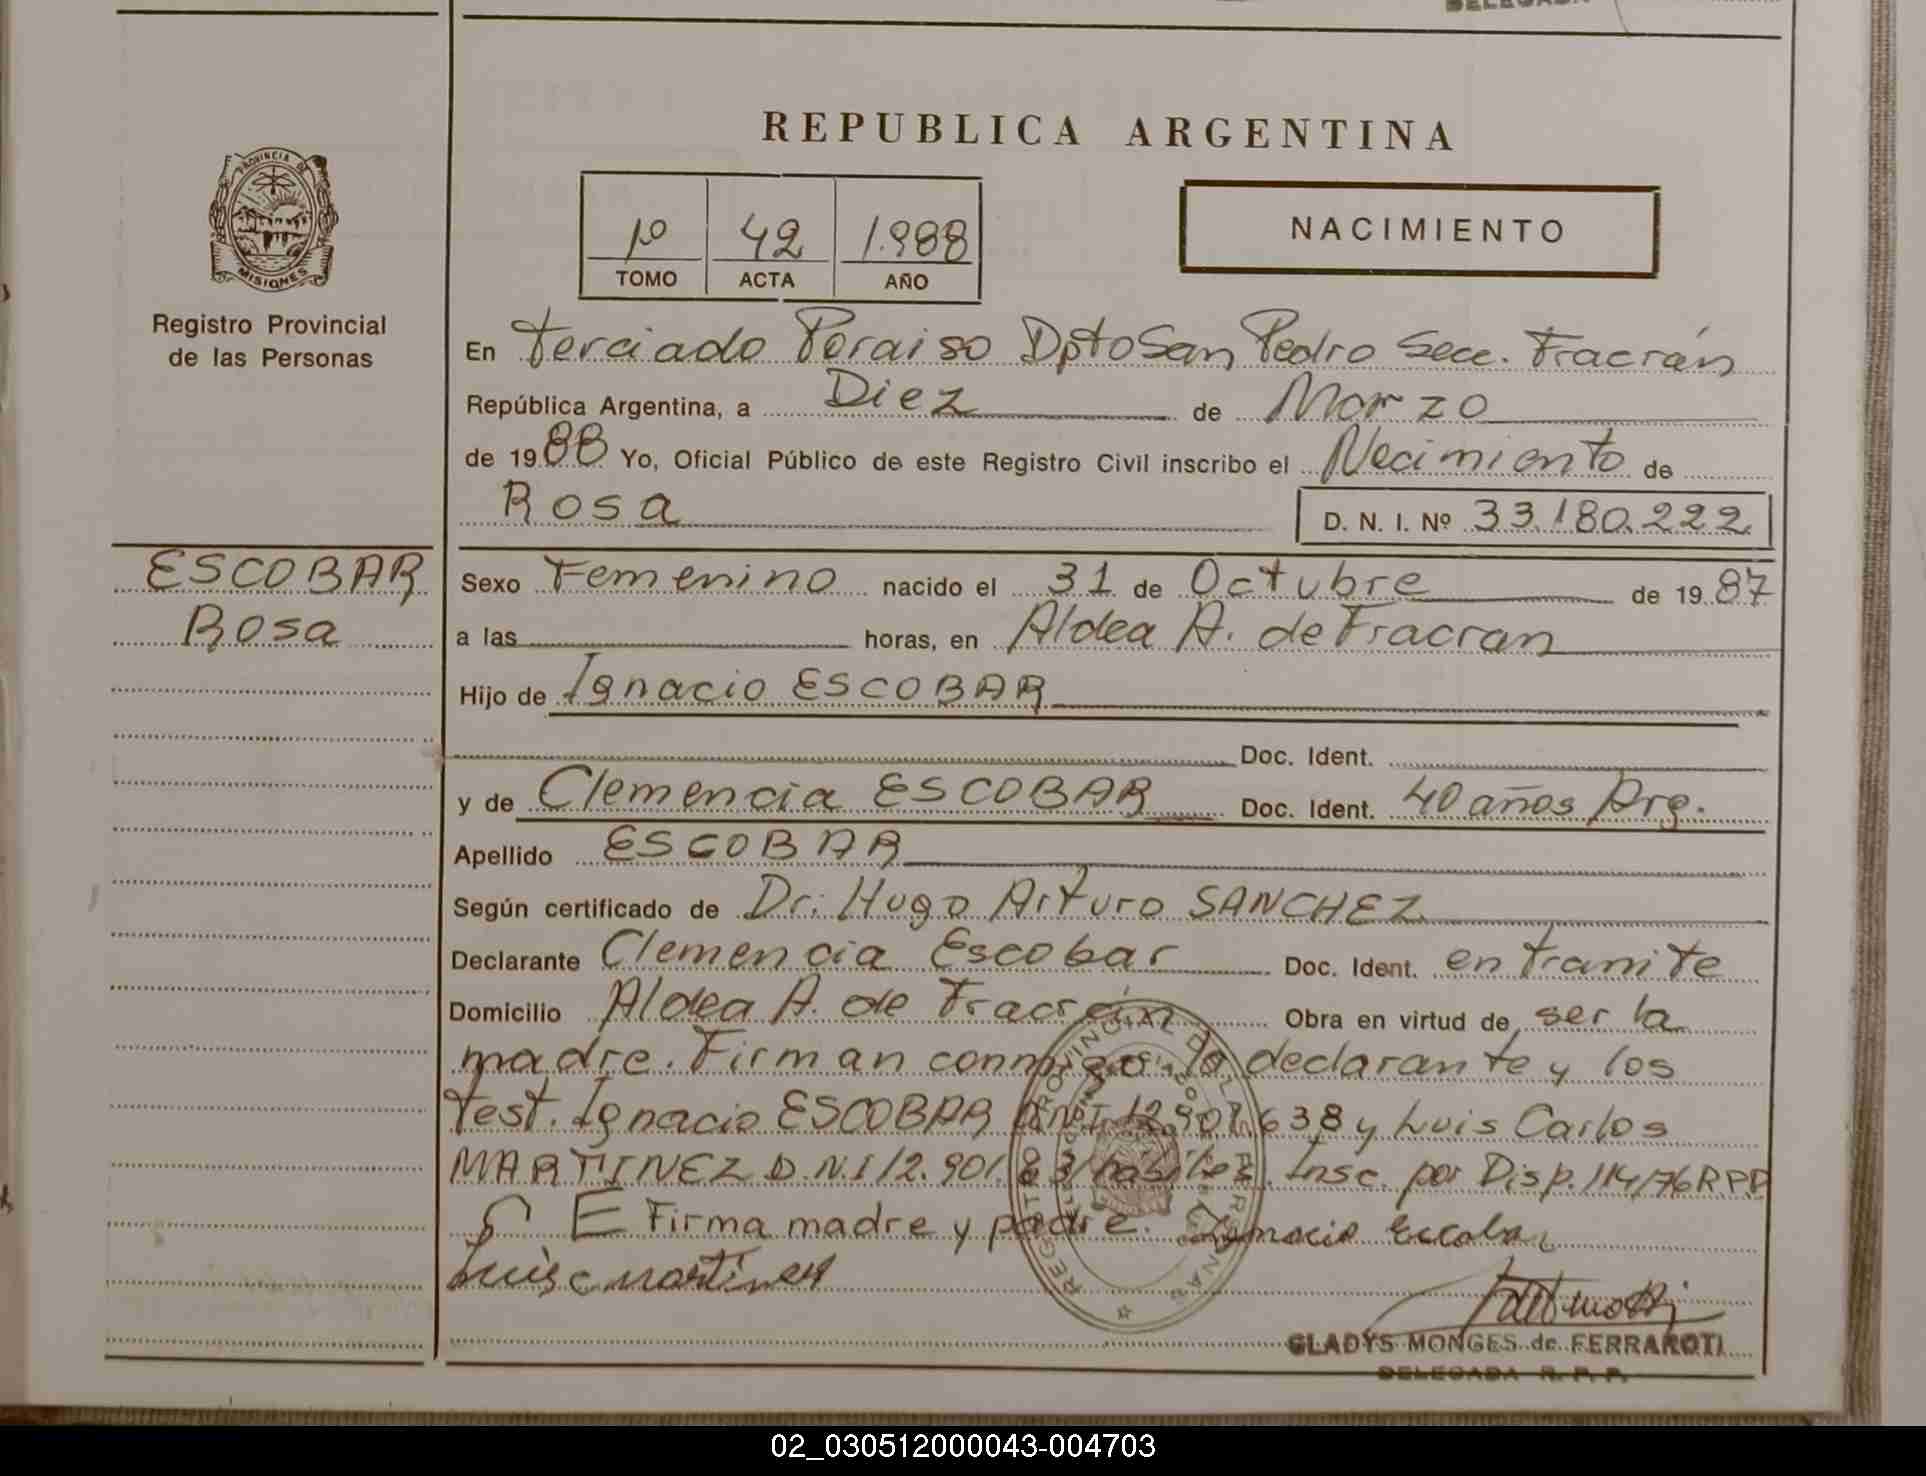 DELEGADA
REPUBLICA ARGENTINA
PROVINCIA DE
MISIONES
Registro Provincial
de las Personas
1º 42 1.988
TOMO ACTA AÑO
NACIMIENTO
En Terciado Paraiso Dpto San Pedro Secc. Fracrán
República Argentina, a Diez de Marzo
de 1988 Yo, Oficial Público de este Registro Civil inscribo el Nacimiento de
Rosa
D. N. I. Nº 33.180.222
ESCOBAR
Rosa
Sexo Femenino nacido el 31 de Octubre de 1987
a las horas, en Aldea A. de Fracran
Hijo de Ignacio ESCOBAR
Doc. Ident.
y de Clemencia ESCOBAR Doc. Ident. 40 años Arg.
Apellido ESCOBAR
Según certificado de Dr. Hugo Arturo SANCHEZ
Declarante Clemencia Escobar Doc. Ident. en tramite
Domicilio Aldea A. de Fracrán Obra en virtud de ser la
madre. Firman conmigo la declarante y los
test. Ignacio ESCOBAR D.N.I. 12.901.638 y Luis Carlos
MARTINEZ D.N.I 12.901. habiles. Insc. por Disp. 114/76 RPP
E Firma madre y padre. Ignacio Escobar
Luis c martinez
GLADYS MONGES de FERRAROTI
DELEGADA R. P. P.
02_030512000043-004703